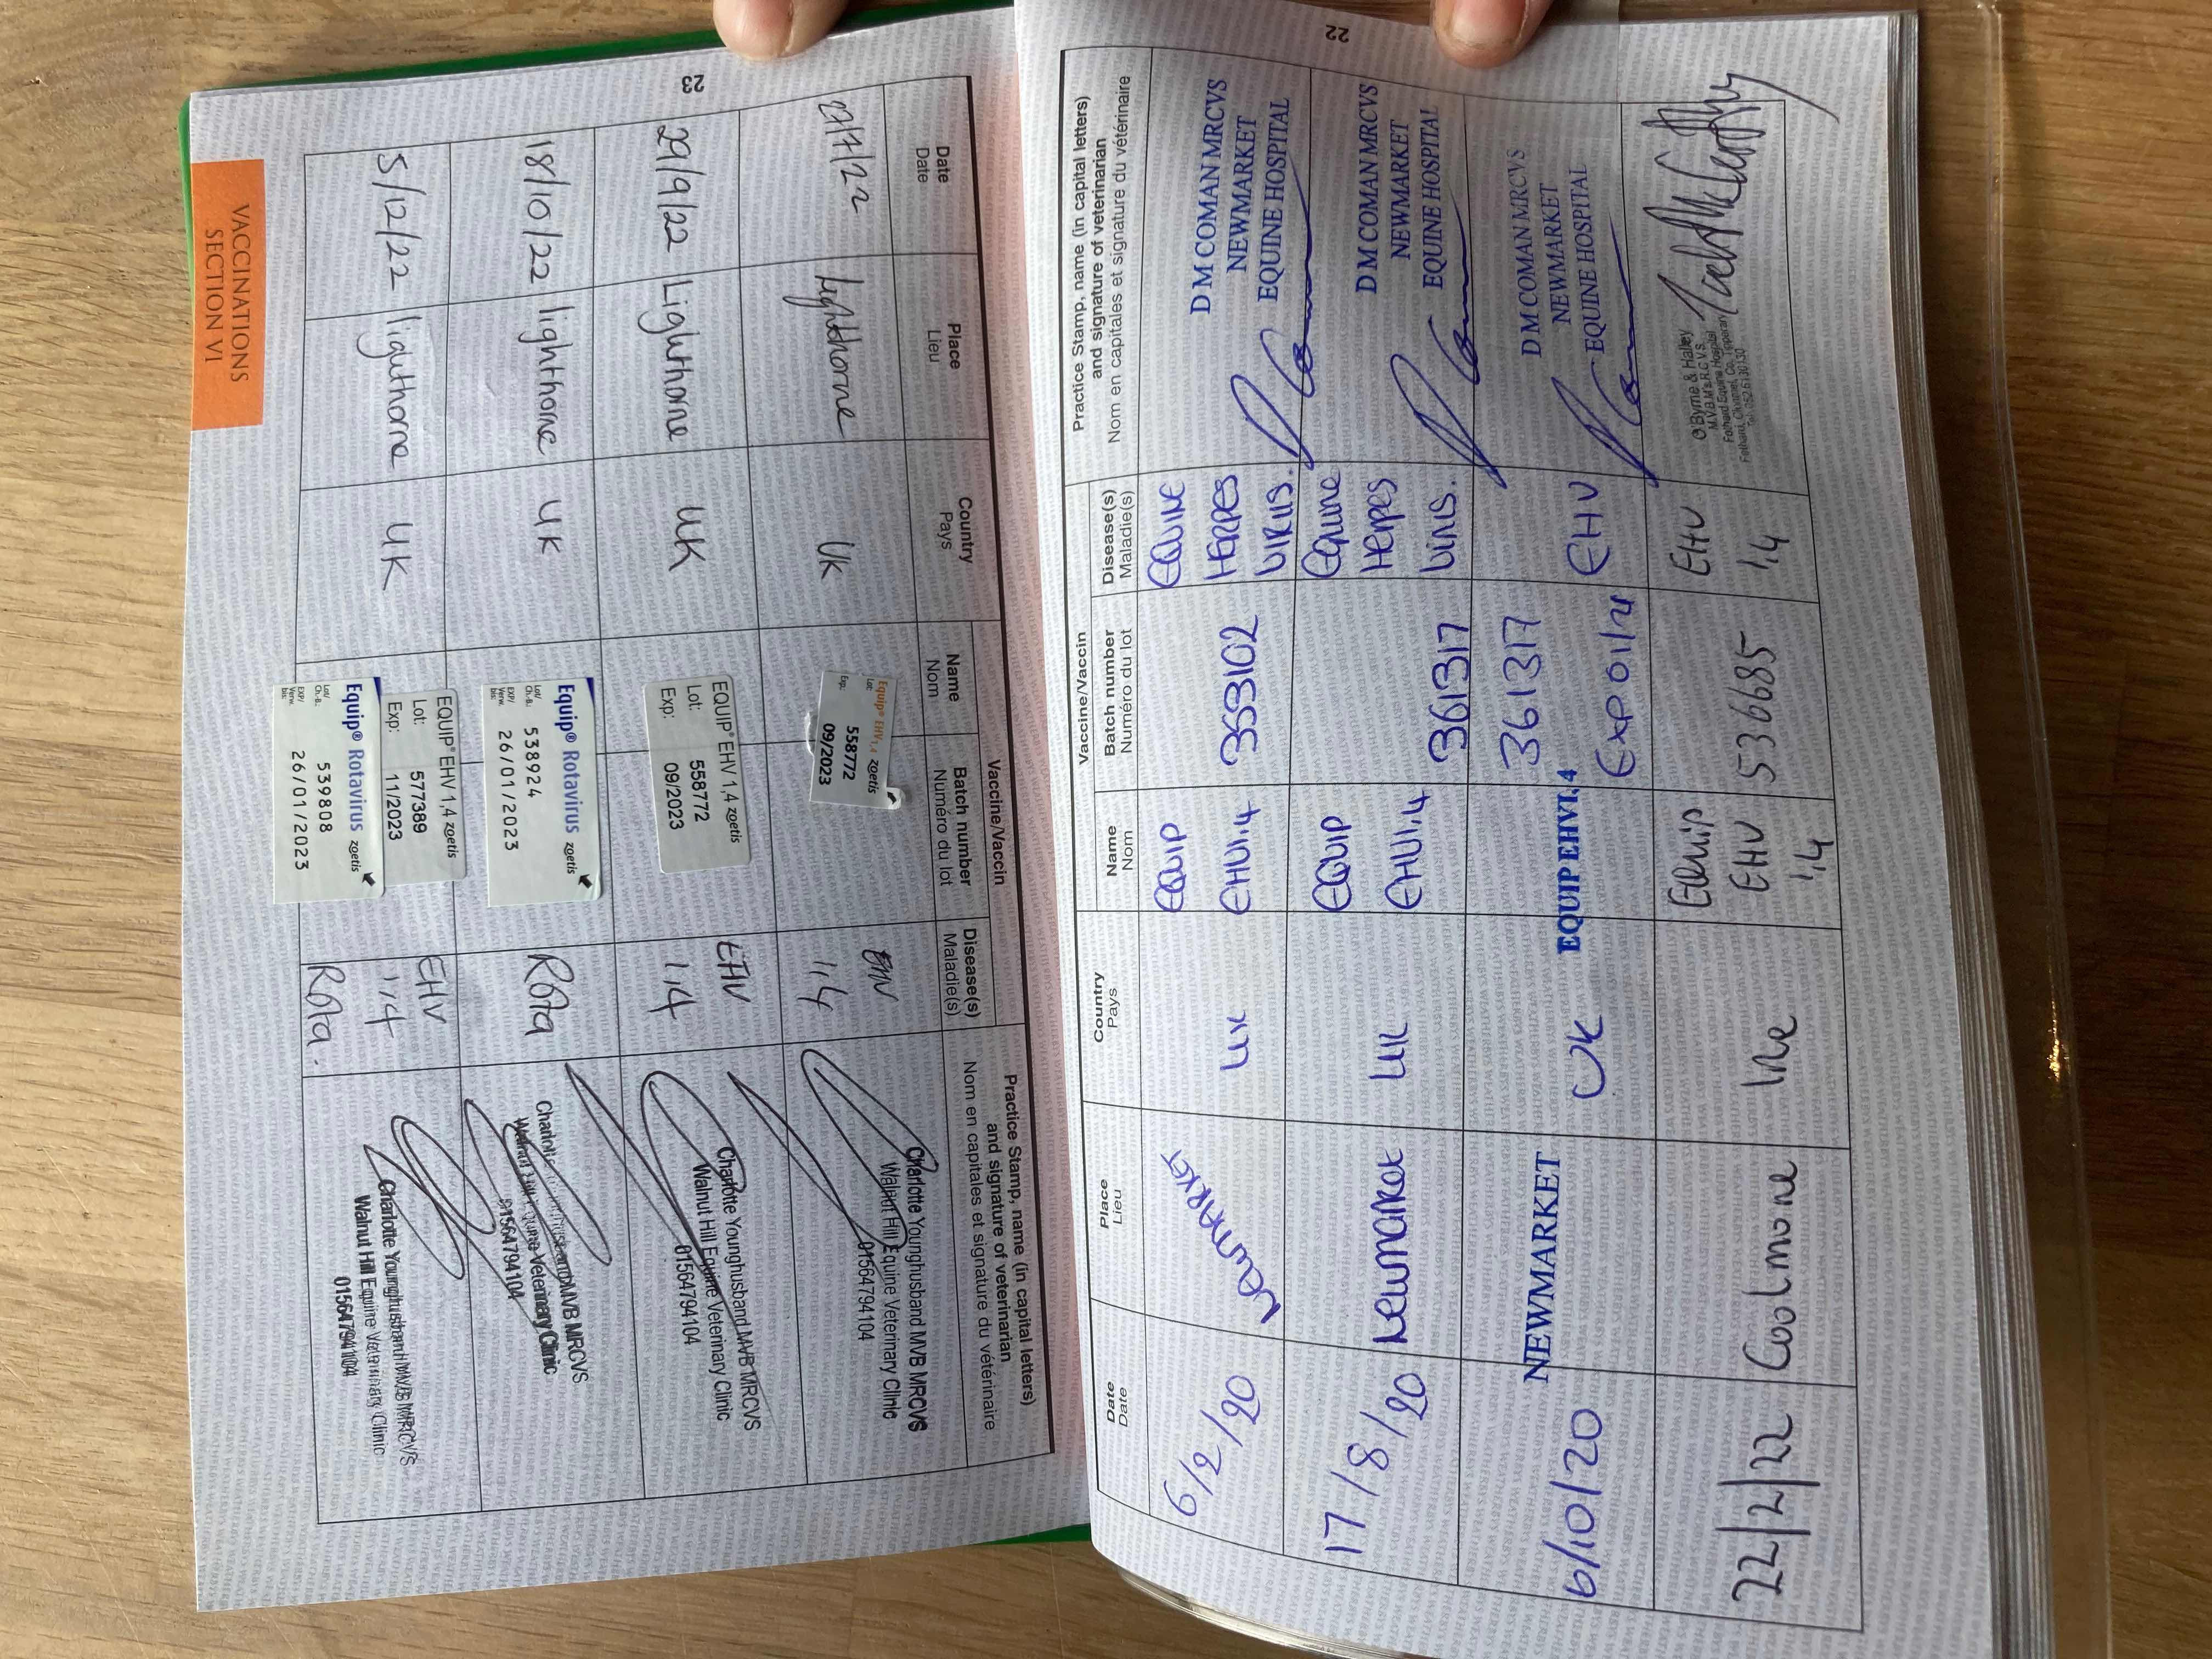 22
Date
Date
Place
Lieu
Country
Pays
Vaccine/Vaccin
Name
Nom
Batch number
Numéro du lot
Disease(s)
Maladie(s)
Practice Stamp, name (in capital letters)
and signature of veterinarian
Nom en capitales et signature du vétérinaire
6/2/20
NEWMARKET
UK
EQUIP
EHV1,4
353102
EQUINE
HERPES
VIRUS.
D M COMAN MRCVS
NEWMARKET
EQUINE HOSPITAL
17/8/20
Newmarket
UK
EQUIP
EHV1,4
361317
Equine
Herpes
Virus.
D M COMAN MRCVS
NEWMARKET
EQUINE HOSPITAL
6/10/20
NEWMARKET
UK
EQUIP EHV1,4
361317
Exp 01/21
EHV
D M COMAN MRCVS
NEWMARKET
EQUINE HOSPITAL
22/2/22
Coolmore
Ire
Equip
EHV
1,4
536685
EHV
1,4
O'Byrne & Halley
M.V.B. M's.R.C.V.S.
Fethard Equine Hospital
Fethard, Clonmel, Co. Tipperary
23
Date
Date
Place
Lieu
Country
Pays
Vaccine/Vaccin
Name
Nom
Batch number
Numéro du lot
Disease(s)
Maladie(s)
Practice Stamp, name (in capital letters)
and signature of veterinarian
Nom en capitales et signature du vétérinaire
27/7/22
Lighthorne
UK
Equip® EHV 1,4 zoetis
Lot: 558772
Exp: 09/2023
EHV
1,4
Charlotte Younghusband MVB MRCVS
Walnut Hill Equine Veterinary Clinic
01564794104
29/9/22
Lighthorne
UK
EQUIP® EHV 1,4 zoetis
Lot: 558772
Exp: 09/2023
EHV
1,4
Charlotte Younghusband MVB MRCVS
Walnut Hill Equine Veterinary Clinic
01564794104
18/10/22
lighthorne
UK
Equip® Rotavirus zoetis
Lot/
Ch.-B.: 538924
EXP/
Verw. 26/01/2023
Rota
Charlotte Younghusband MVB MRCVS
Walnut Hill Equine Veterinary Clinic
01564794104
5/12/22
lighthorne
UK
EQUIP® EHV 1,4 zoetis
Lot: 577389
Exp: 11/2023
Equip® Rotavirus zoetis
Lot/
Ch.-B.: 539808
EXP/
Verw. bis: 26/01/2023
EHV
1,4
Rota.
Charlotte Younghusband MVB MRCVS
Walnut Hill Equine Veterinary Clinic
01564794104
VACCINATIONS
SECTION VI